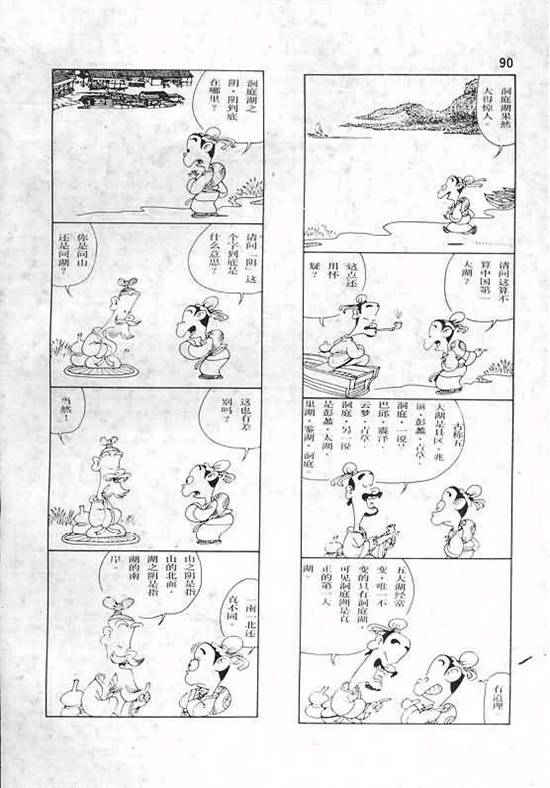 90
洞庭湖果然
大得惊人。
请问这算不
算中国第一
大湖?
这点还
用怀
疑?
古称五
大湖是具区,兆
滆,彭蠡,青草,
洞庭,一说?
巴邱,震泽,
云梦,青草,
洞庭,另一说
是彭蠡,太湖,
巢湖,鉴湖,洞庭
五大湖经常
变,唯一不
变的只有洞庭湖,
可见洞庭湖是真
正的第一大
湖
有道理。
洞庭湖之
阴,阴到底
在哪里?
请问「阴」这
个字到底是
什么意思?
你是问山
还是问湖?
这也有差
别吗?
当然!
山之阴是指
山的北面,
湖之阴是指
湖的南
岸。
一南一北还
真不同。